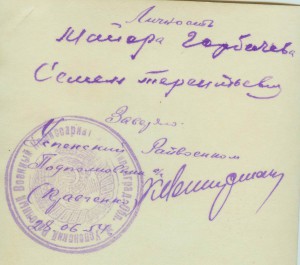 Личность
Майора Горбачева
Семен Терентьевич
Заверяю
Успенский Райвоенком
Подполковник
(Кравченко)
28.06.54